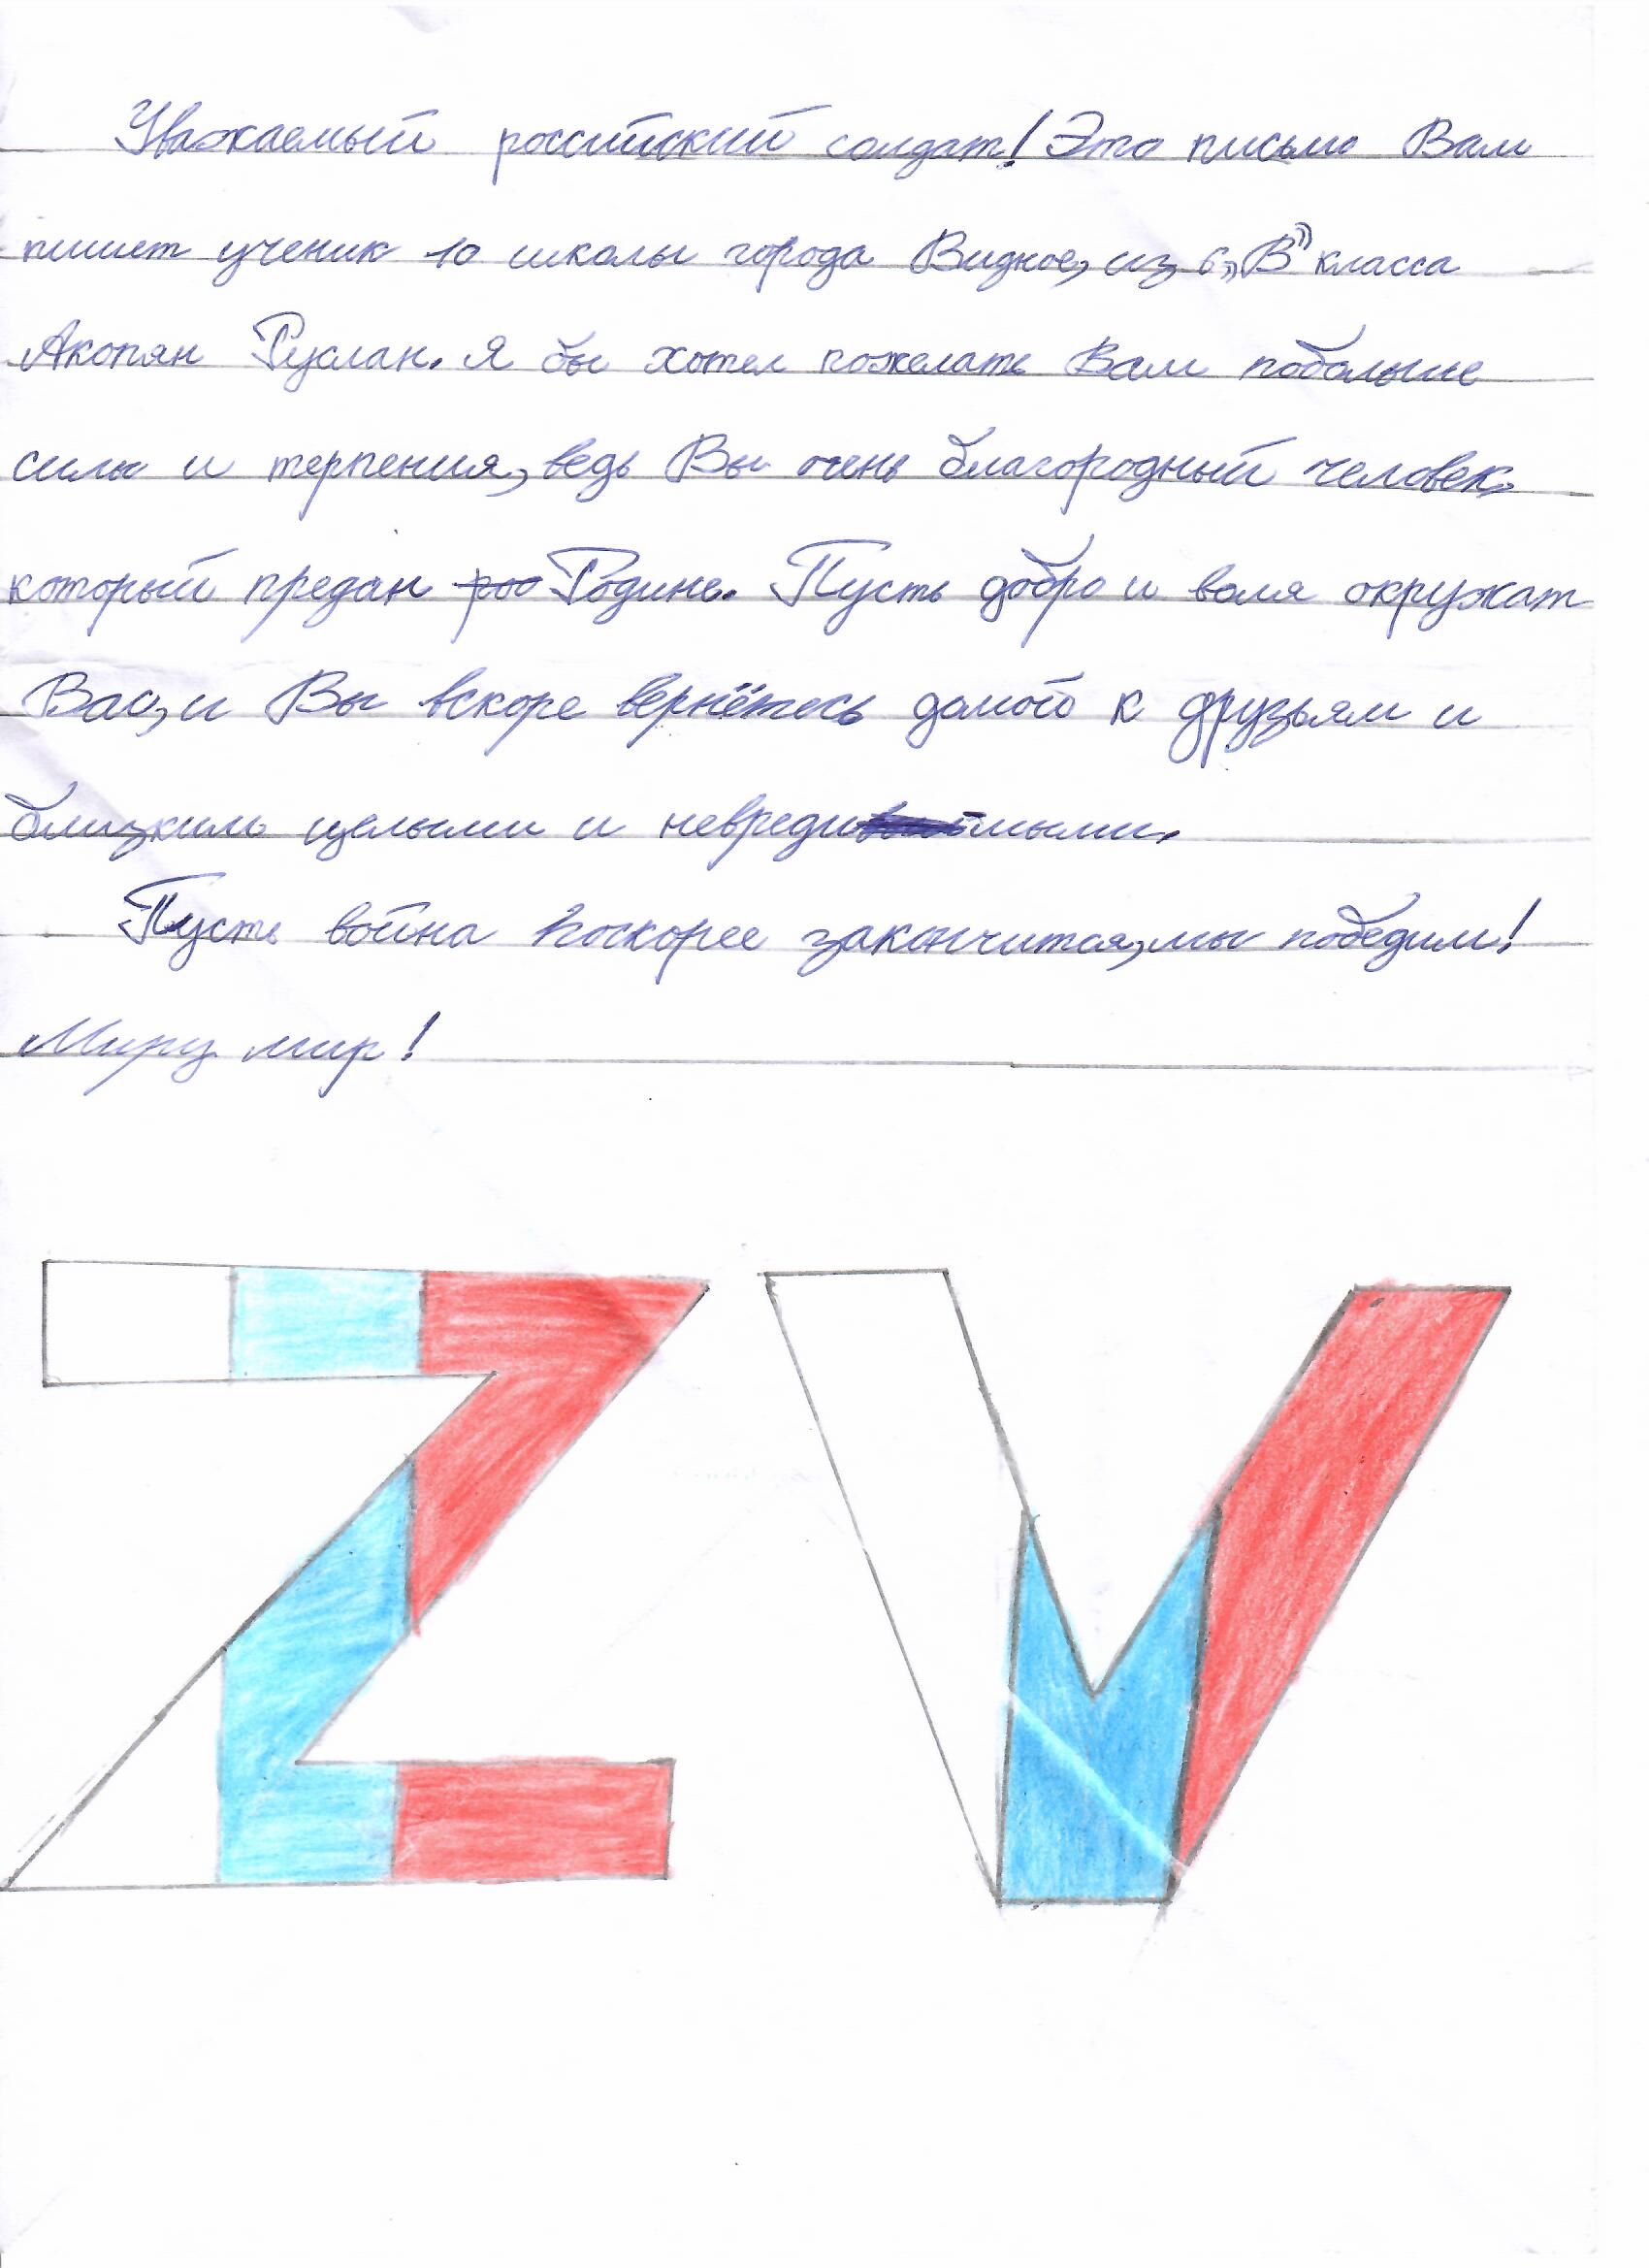 Уважаемый российский солдат! Это письмо Вам
пишет ученик 10 школы города Видное, из 6 „В" класса
Акопян Руслан. Я бы хотел пожелать Вам побольше
силы и терпения, ведь Вы очень благородный человек,
который предан роо Родине. Пусть добро и воля окружат
Вас, и Вы вскоре вернётесь домой к друзьям и
близким целыми и невредимыми.
Пусть война поскорее закончится, мы победим!
Миру мир!
Z V